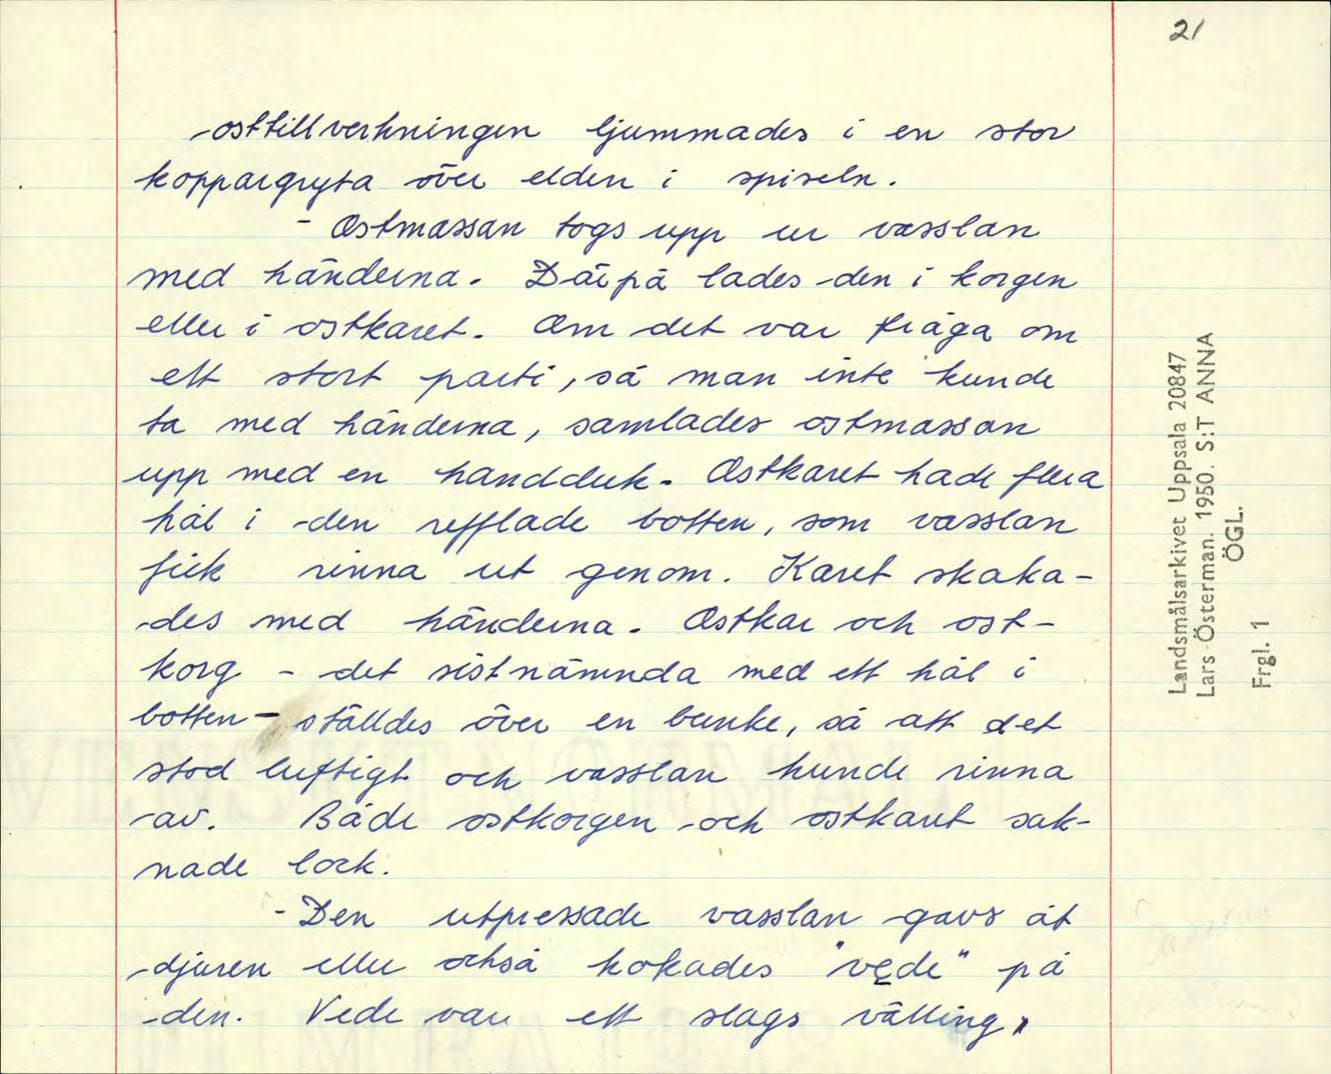 21
osttillverkningen ljummades i en stor
koppargryta över elden i spiseln.
- Ostmassan togs upp ur vasslan
med händerna. Därpå lades den i korgen
eller i ostkaret. Om det var fråga om
ett stort parti, så man inte kunde
ta med händerna, samlades ostmassan
upp med en handduk. Ostkaret hade flera
hål i den refflade botten, som vasslan
fick rinna ut genom. Karet skaka-
des med händerna. Ostkar och ost-
korg - det sistnämnda med ett hål i
botten - ställdes över en bunke, så att det
stod luftigt och vasslan kunde rinna
av. Både ostkorgen och ostkaret sak-
nade lock.
- Den utpressade vasslan gavs åt
djuren eller också kokades "vede" på
den. Vede var ett slags välling,
Landsmålsarkivet Uppsala 20847
Lars Österman. 1950. S:T ANNA
ÖGL.
Frgl. 1